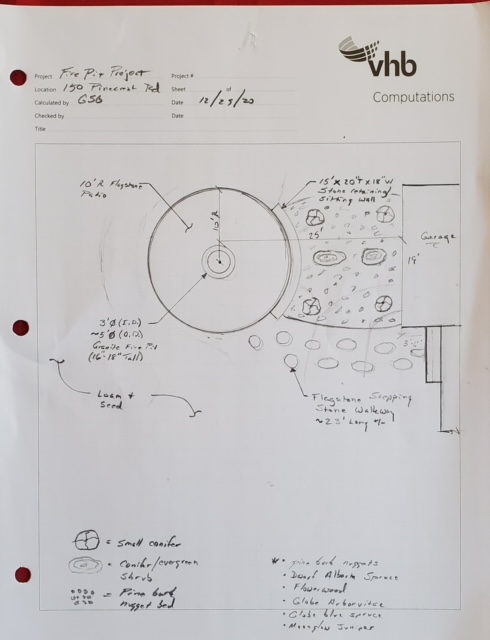 vhb
Computations
Project Fire Pit Project Project #
Location 150 Pinecrest Rd Sheet of
Calculated by GSB Date 12/25/20
Checked by Date
Title
10'R Flagstone
Patio
10'R
15' x 20"T x 18"W
Stone retaining/
Sitting wall
25'
Garage
19'
3'Ø (I.D.)
~5'Ø (O.D.)
Granite Fire Pit
(16-18" Tall)
Loam +
Seed
Flagstone Stepping
Stone Walkway
~23' Long +/-
= Small conifer
= Conifer/evergreen
Shrub
= Pine bark
nugget bed
* • pine bark nuggets
• Dwarf Alberta Spruce
• Globe Arborvitae
• Globe blue spruce
• Juniper